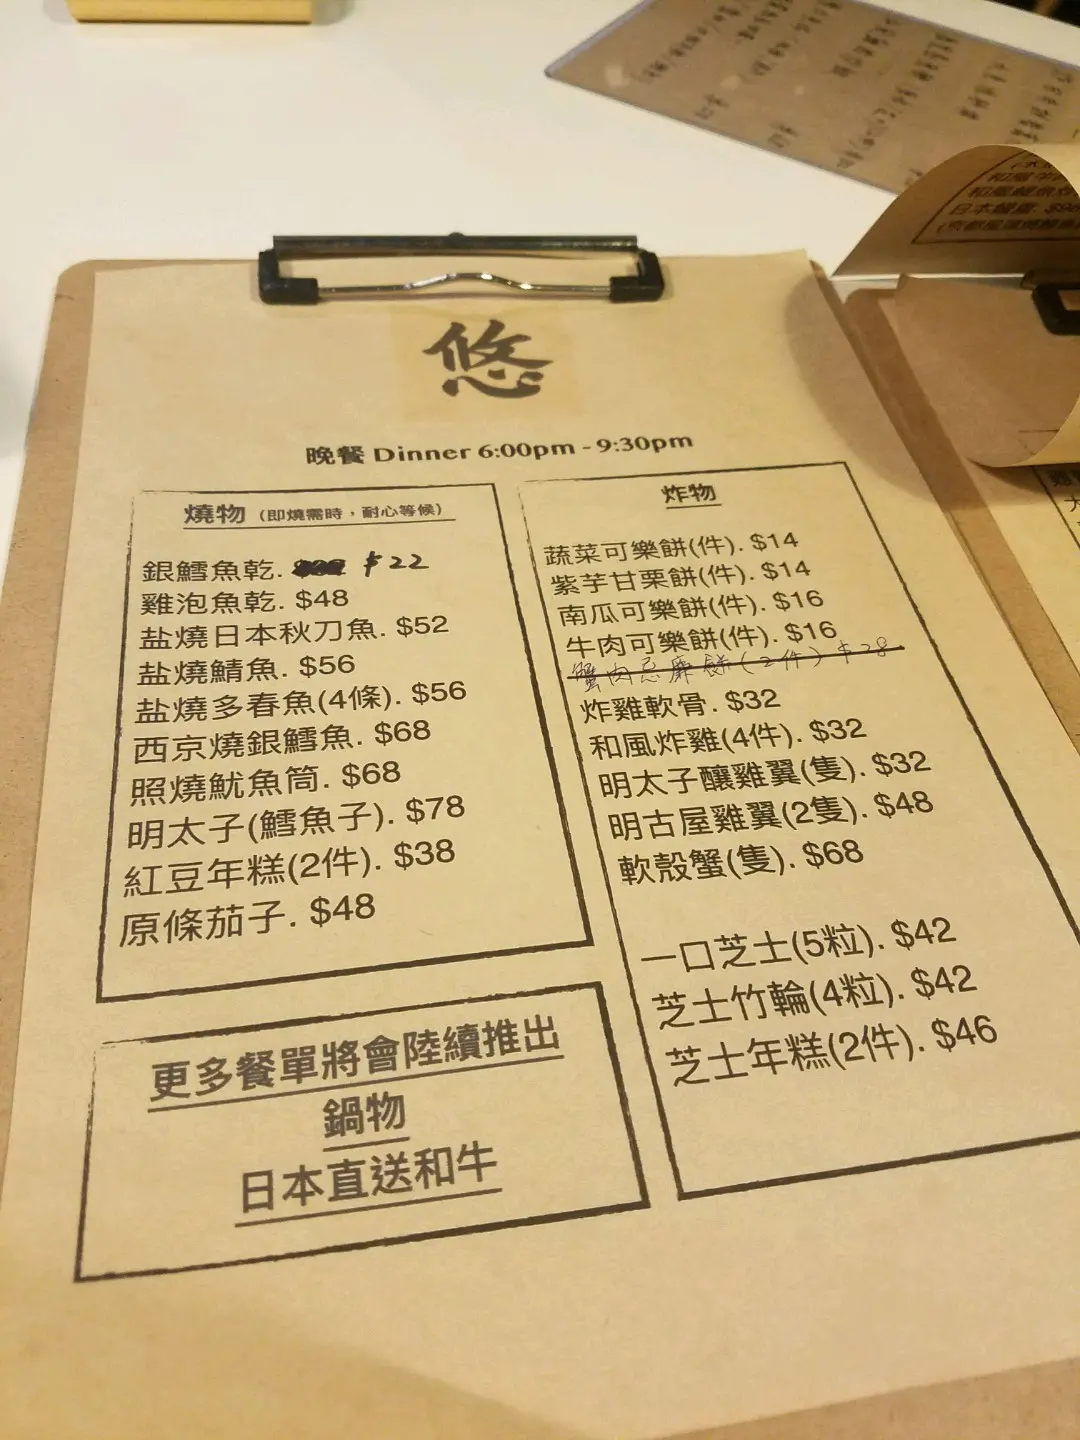 悠
晚餐 Dinner 6:00pm - 9:30pm
燒物 (即燒需時，耐心等候)
銀鱈魚乾. $22
雞泡魚乾. $48
盐燒日本秋刀魚. $52
盐燒鯖魚. $56
盐燒多春魚(4條). $56
西京燒銀鱈魚. $68
照燒魷魚筒. $68
明太子(鱈魚子). $78
紅豆年糕(2件). $38
原條茄子. $48
更多餐單將會陸續推出
鍋物
日本直送和牛
炸物
蔬菜可樂餅(件). $14
紫芋甘栗餅(件). $14
南瓜可樂餅(件). $16
牛肉可樂餅(件). $16
蟹肉忌廉餅(2件) $28
炸雞軟骨. $32
和風炸雞(4件). $32
明太子釀雞翼(隻). $32
明古屋雞翼(2隻). $48
軟殼蟹(隻). $68
一口芝士(5粒). $42
芝士竹輪(4粒). $42
芝士年糕(2件). $46